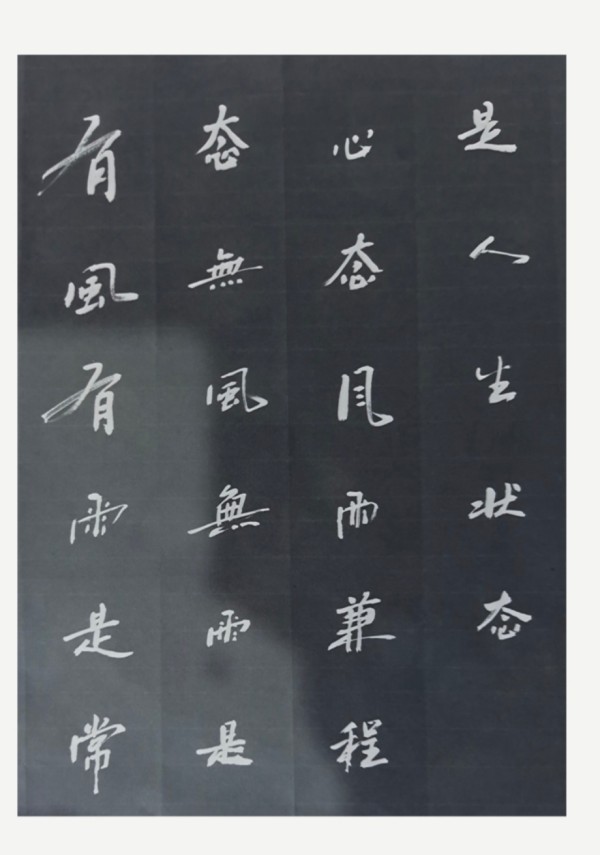 有風有雨是常
态無風無雨是
心态风雨兼程
是人生状态